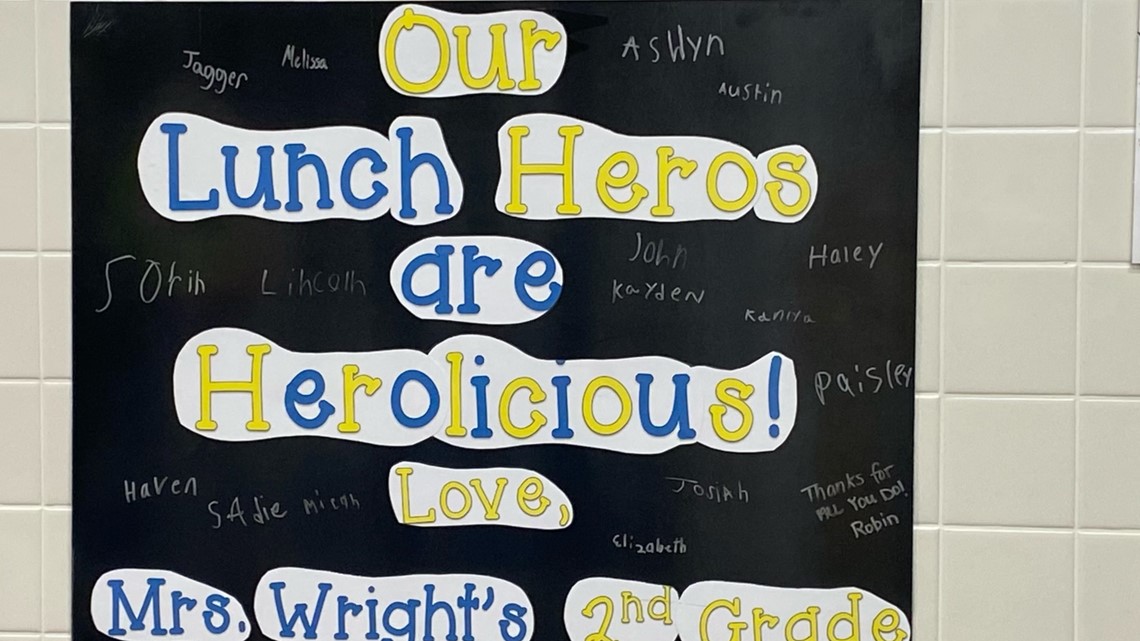 Our
Jagger Melissa Ashlyn
Austin
Lunch Heros
John Haley
Lincoln are Kayden
Kaniya
Herolicious!
Paisley
Haven Sadie Micah Love, Josiah
Thanks for
All You Do!
Robin
Elizabeth
Mrs. Wright's 2nd Grade